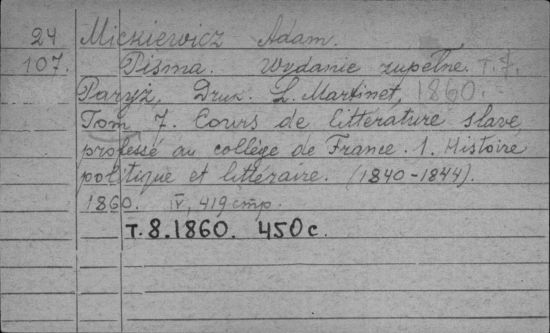 24 Mickiewicz Adam.
107. Pisma. Wydanie zupełne. т. 7.
Paryż, Druk. L. Martinet, 1860.
Tom 7. Cours de littérature slave
professé au collège de France. 1. Histoire
politique et littéraire. (1840-1844).
1860. IV, 419 стр.
т. 8. 1860. 450 с.